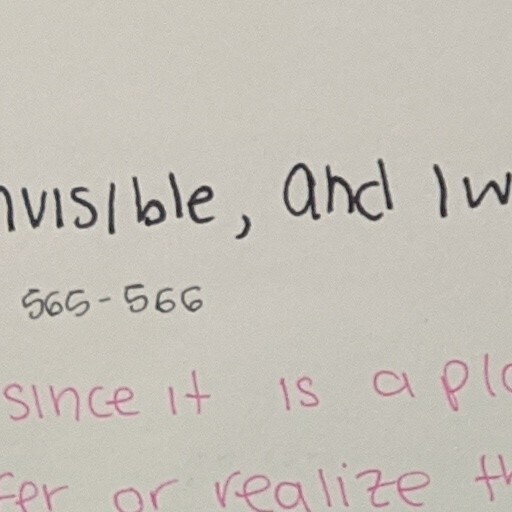 nvisible, and I w
565-566
since it is a pla
fer or realize th